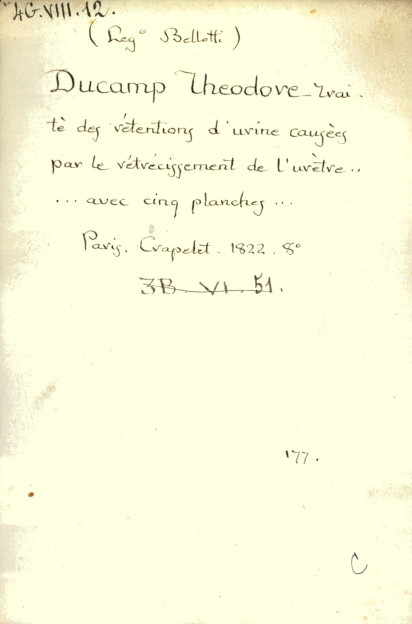 4G.VIII.12.
(Leg° Bellotti)
Ducamp Theodore_Trai.
tè des rétentions d'urine causées
par le rétrécissement de l'urètre..
... avec cinq planches ...
Paris. Crapelet. 1822. 8°
3B. VI. 51.
'77.
C